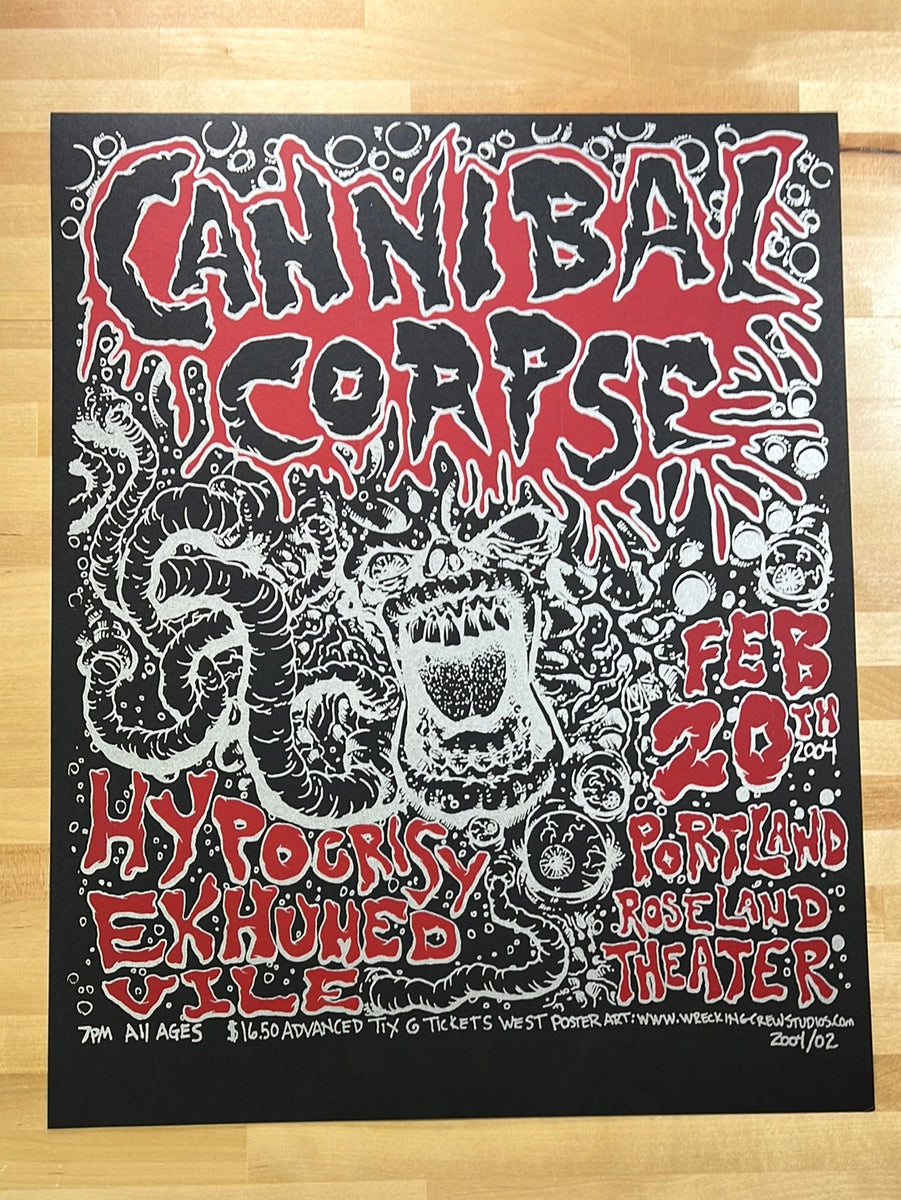 CANNIBAL
CORPSE
FEB
20TH
2004
HYPOCRISY
EXHUMED
VILE
PORTLAND
ROSELAND
THEATER
7PM All AGES $16.50 ADVANCED TIX @ TICKETS WEST POSTER ART: WWW.WRECKINGCREWSTUDIOS.COM
2004/02